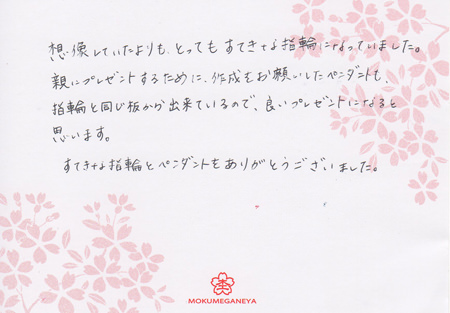 想像していたよりも、とってもすてきな指輪になっていました。
親にプレゼントするために、作成をお願いしたペンダントも、
指輪と同じ板から出来ているので、良いプレゼントになると
思います。
すてきな指輪とペンダントをありがとうございました。
MOKUMEGANEYA